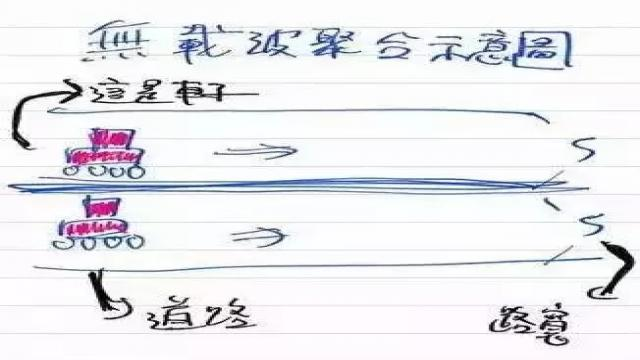 無載波聚合示意圖
這是車子
S
S
道路
路寬